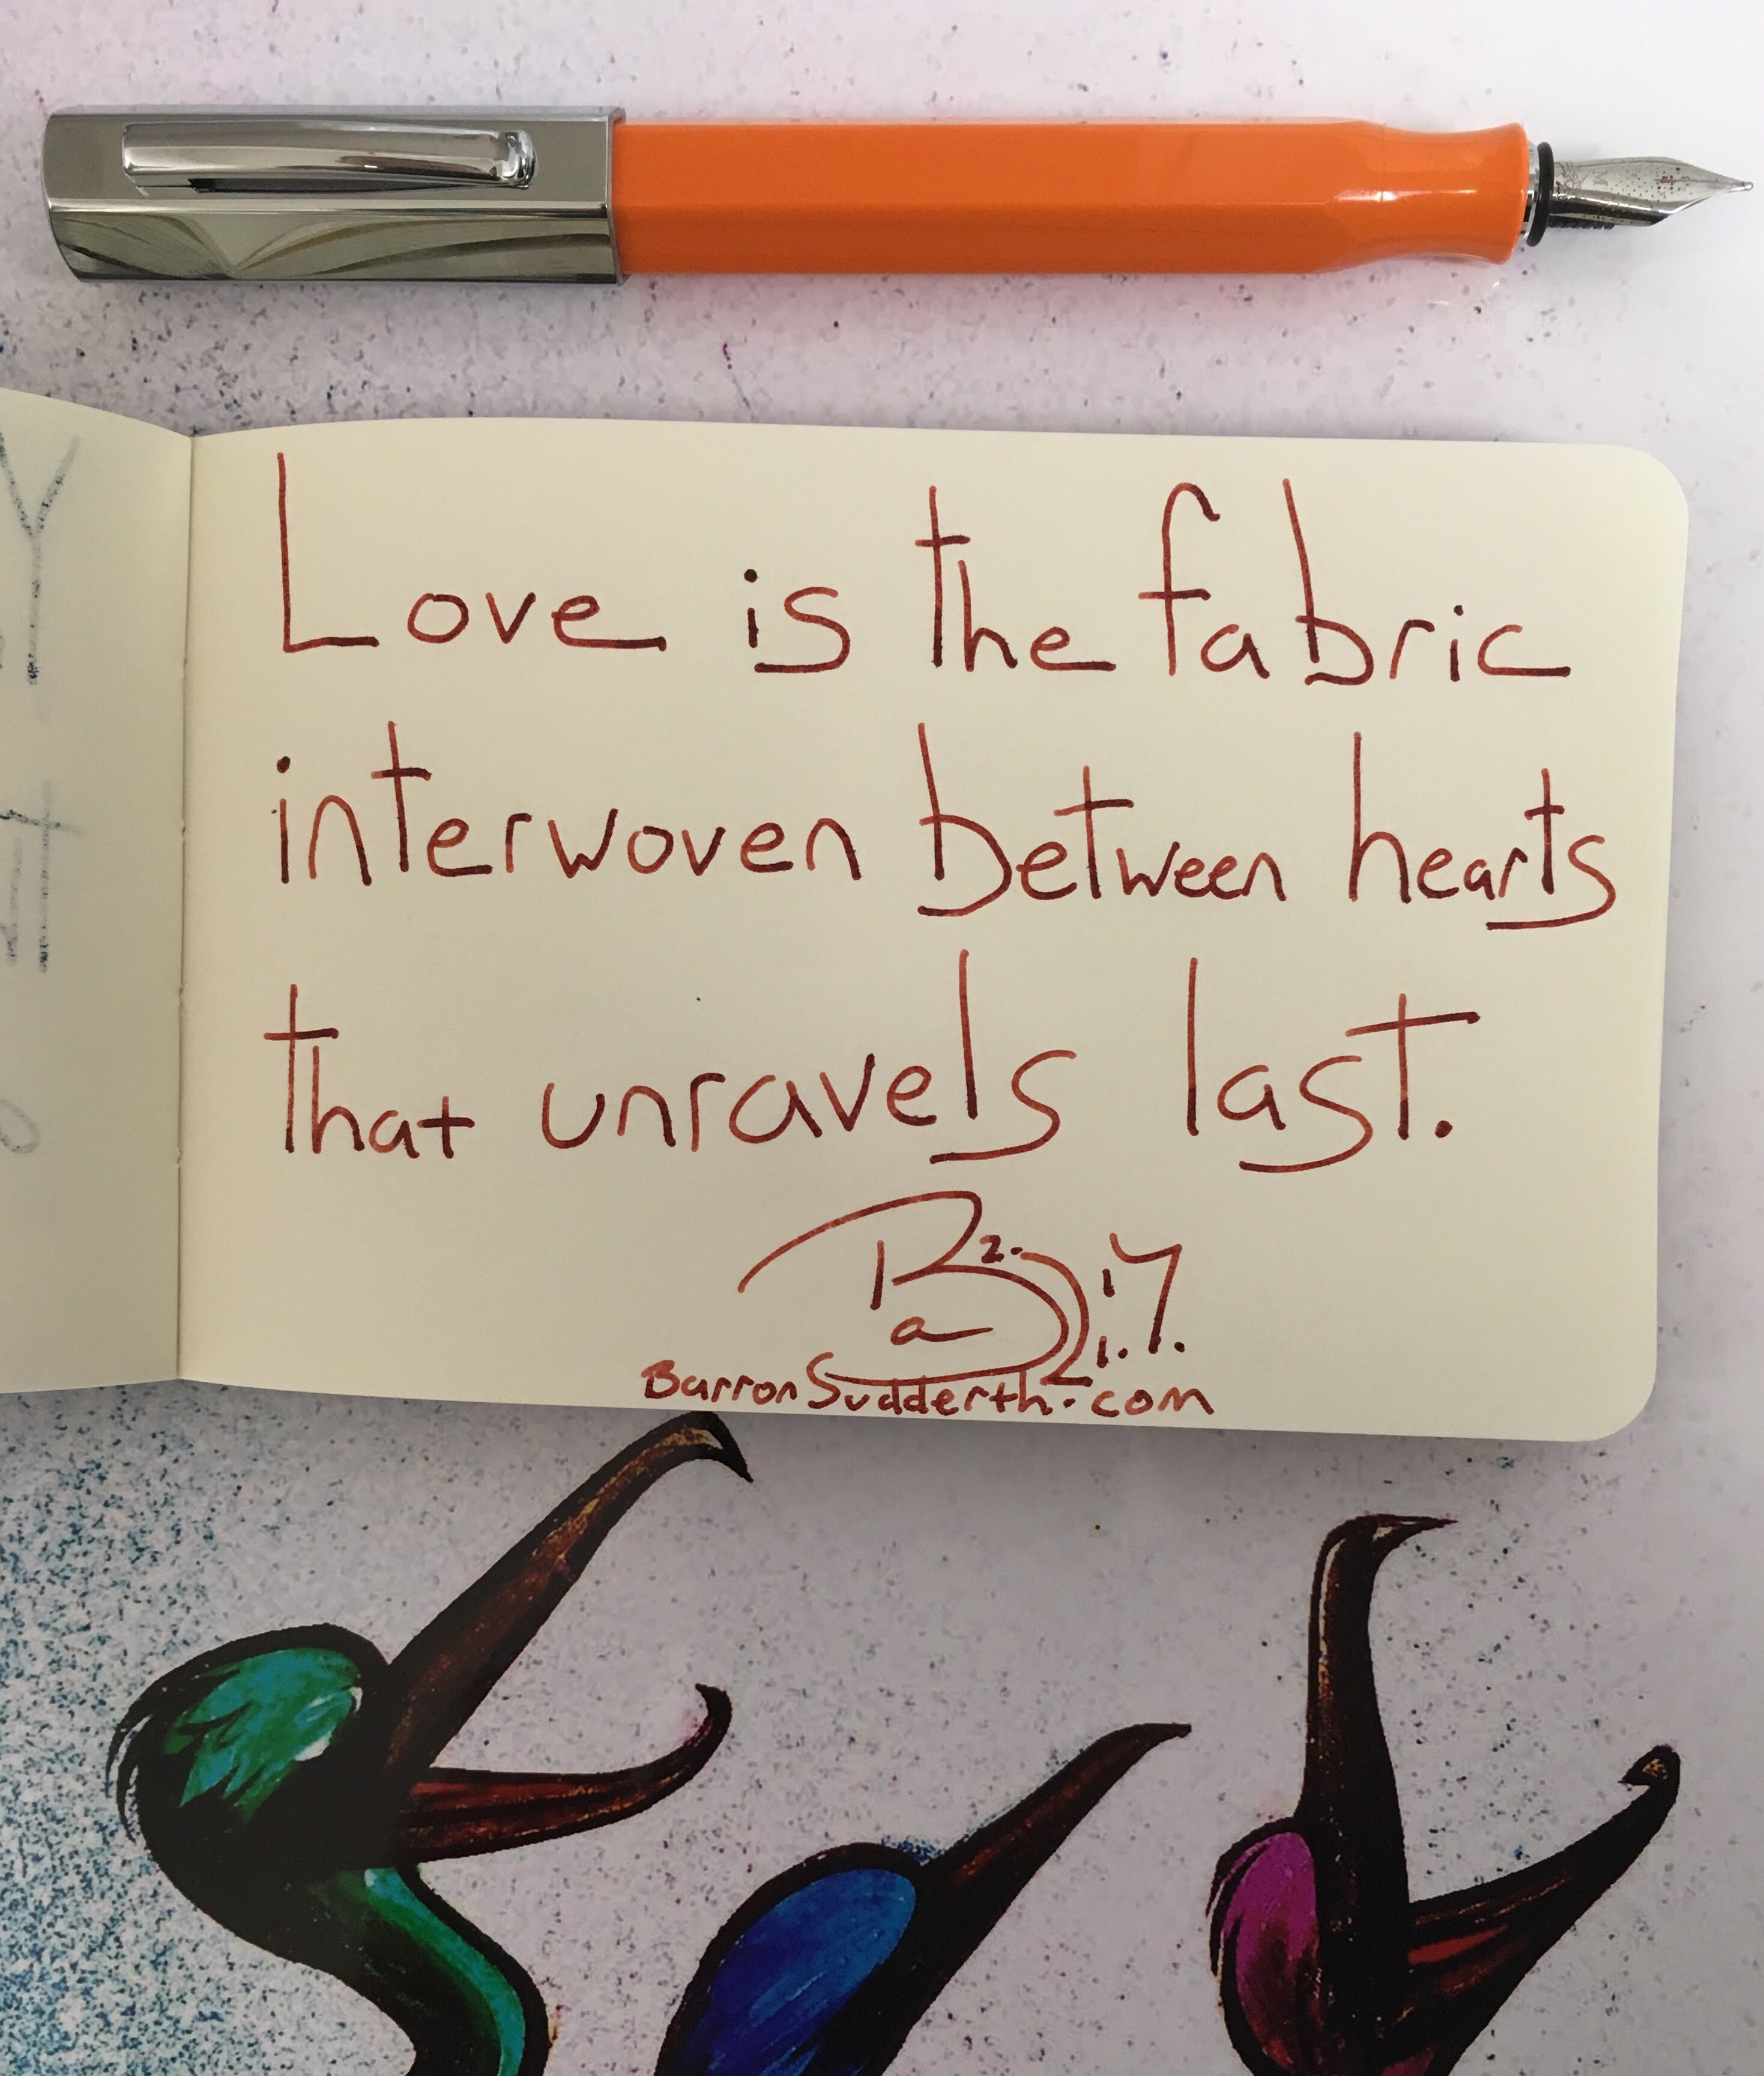 Love is the fabric
interwoven between hearts
that unravels last.
BarronSudderth.com